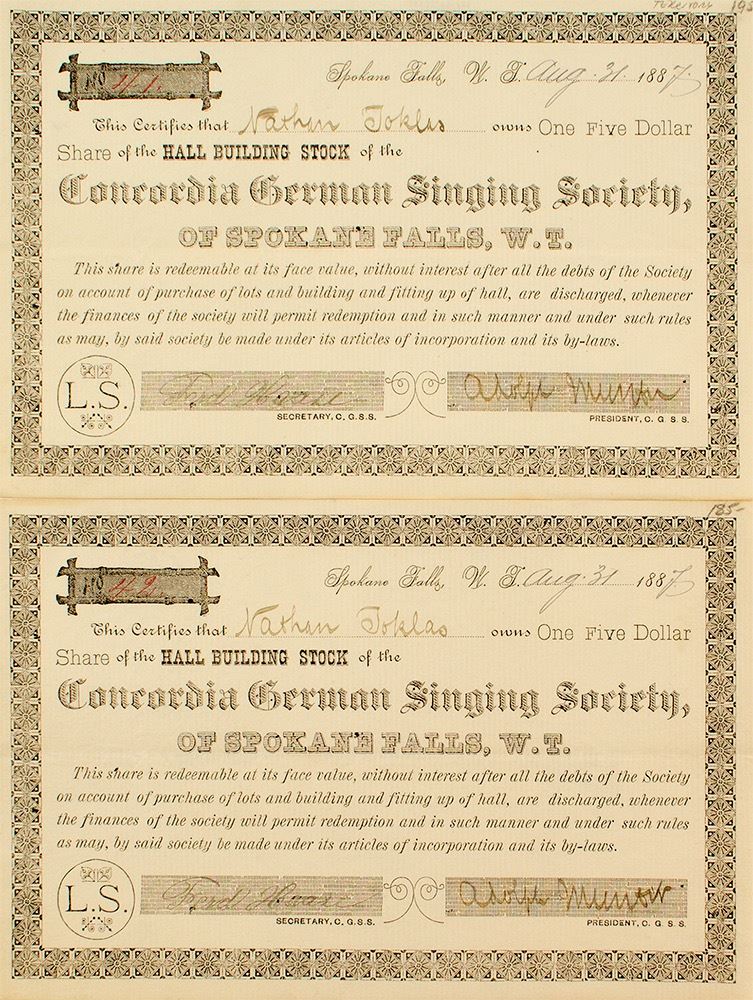 195
No 41.
Spokane Falls, W. T. Aug. 31. 1887.
This Certifies that Nathan Toklas owns One Five Dollar
Share of the HALL BUILDING STOCK of the
Concordia German Singing Society,
OF SPOKANE FALLS, W. T.
This share is redeemable at its face value, without interest after all the debts of the Society
on account of purchase of lots and building and fitting up of hall, are discharged, whenever
the finances of the society will permit redemption and in such manner and under such rules
as may, by said society be made under its articles of incorporation and its by-laws.
L.S. Ferd Adolph Munster
SECRETARY, C. G. S. S. PRESIDENT, C. G. S. S.
185-
No 42.
Spokane Falls, W. T. Aug. 31 1887
This Certifies that Nathan Toklas owns One Five Dollar
Share of the HALL BUILDING STOCK of the
Concordia German Singing Society,
OF SPOKANE FALLS, W. T.
This share is redeemable at its face value, without interest after all the debts of the Society
on account of purchase of lots and building and fitting up of hall, are discharged, whenever
the finances of the society will permit redemption and in such manner and under such rules
as may, by said society be made under its articles of incorporation and its by-laws.
L.S. Ferd Adolph Munster
SECRETARY, C. G. S. S. PRESIDENT, C. G. S. S.